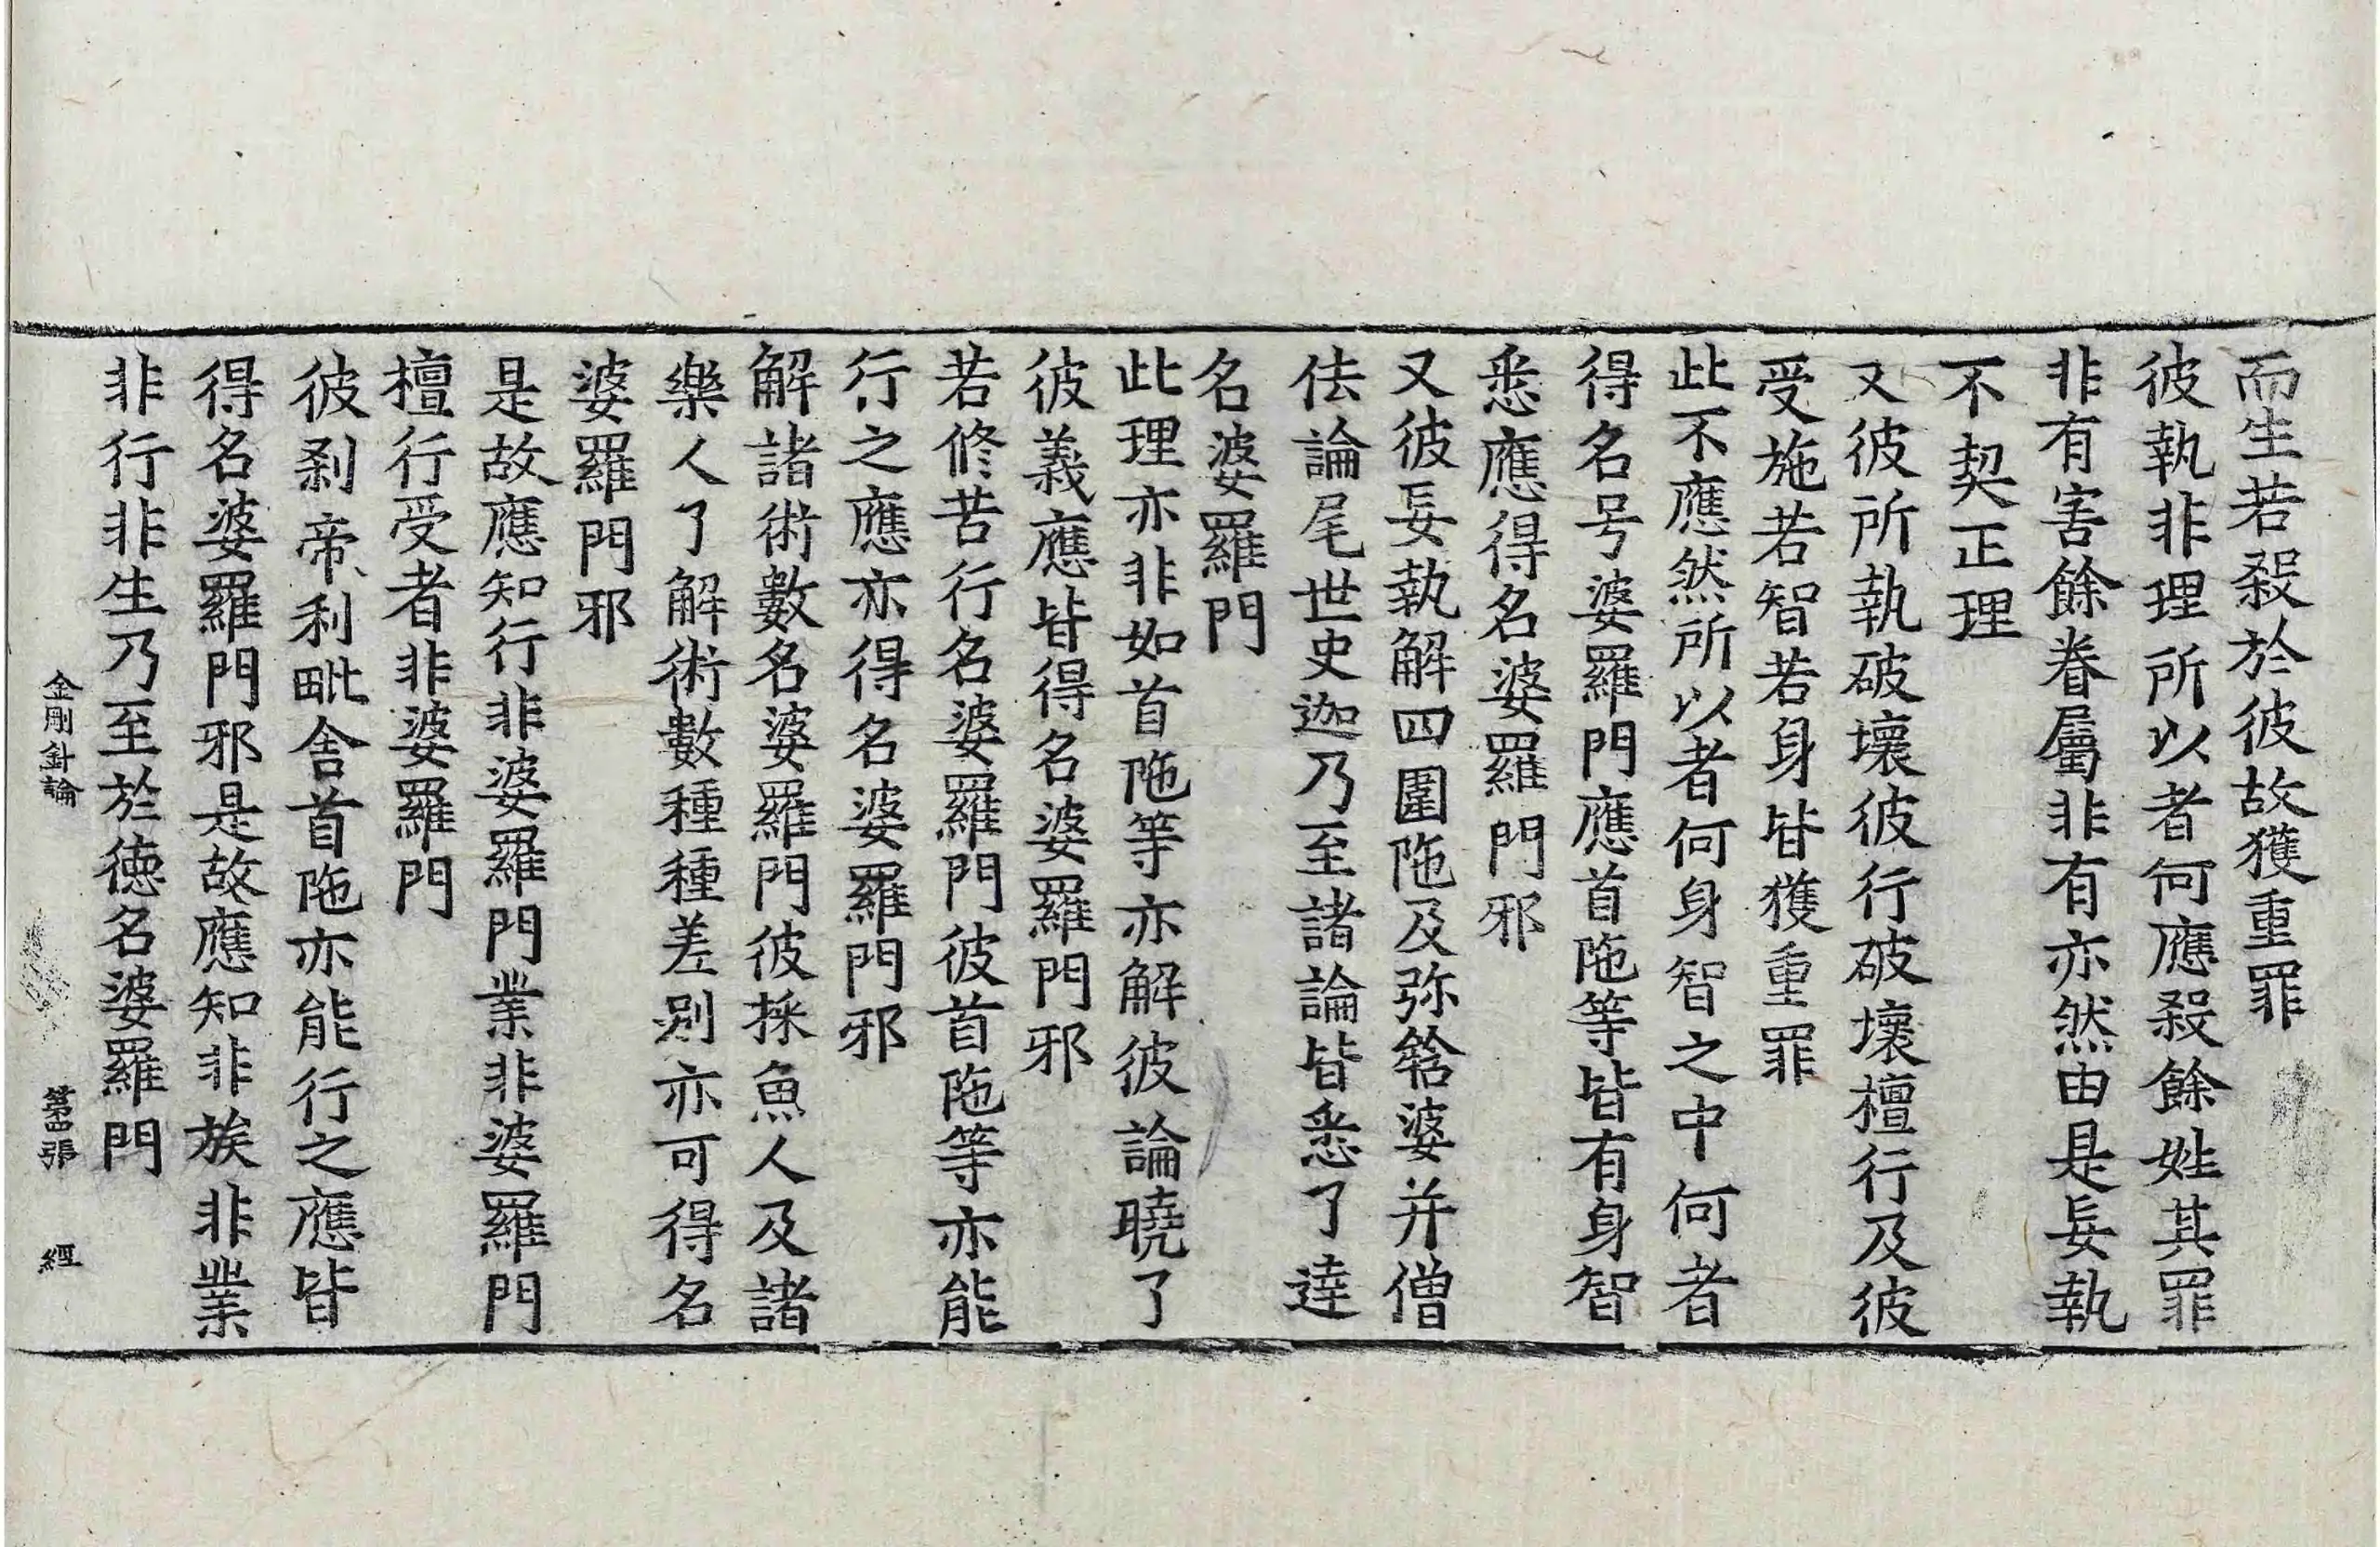 而生若殺於彼故獲重罪
彼執非理所以者何應殺餘姓其罪
非有害餘眷屬非有亦然由是妄執
不契正理
又彼所執破壞彼行破壞檀行及彼
受施若智若身皆獲重罪
此不應然所以者何身智之中何者
得名号婆羅門應首陁等皆有身智
悉應得名婆羅門邪
又彼妄執解四圍陁及弥鎋婆并僧
佉論尾世史迦乃至諸論皆悉了達
名婆羅門
此理亦非如首陁等亦解彼論曉了
彼義應皆得名婆羅門邪
若修苦行名婆羅門彼首陁等亦能
行之應亦得名婆羅門邪
解諸術數名婆羅門彼採魚人及諸
樂人了解術數種種差別亦可得名
婆羅門邪
是故應知行非婆羅門業非婆羅門
檀行受者非婆羅門
彼刹帝利毗舍首陁亦能行之應皆
得名婆羅門邪是故應知非族非業
非行非生乃至於德名婆羅門
金剛針論 第四張 經